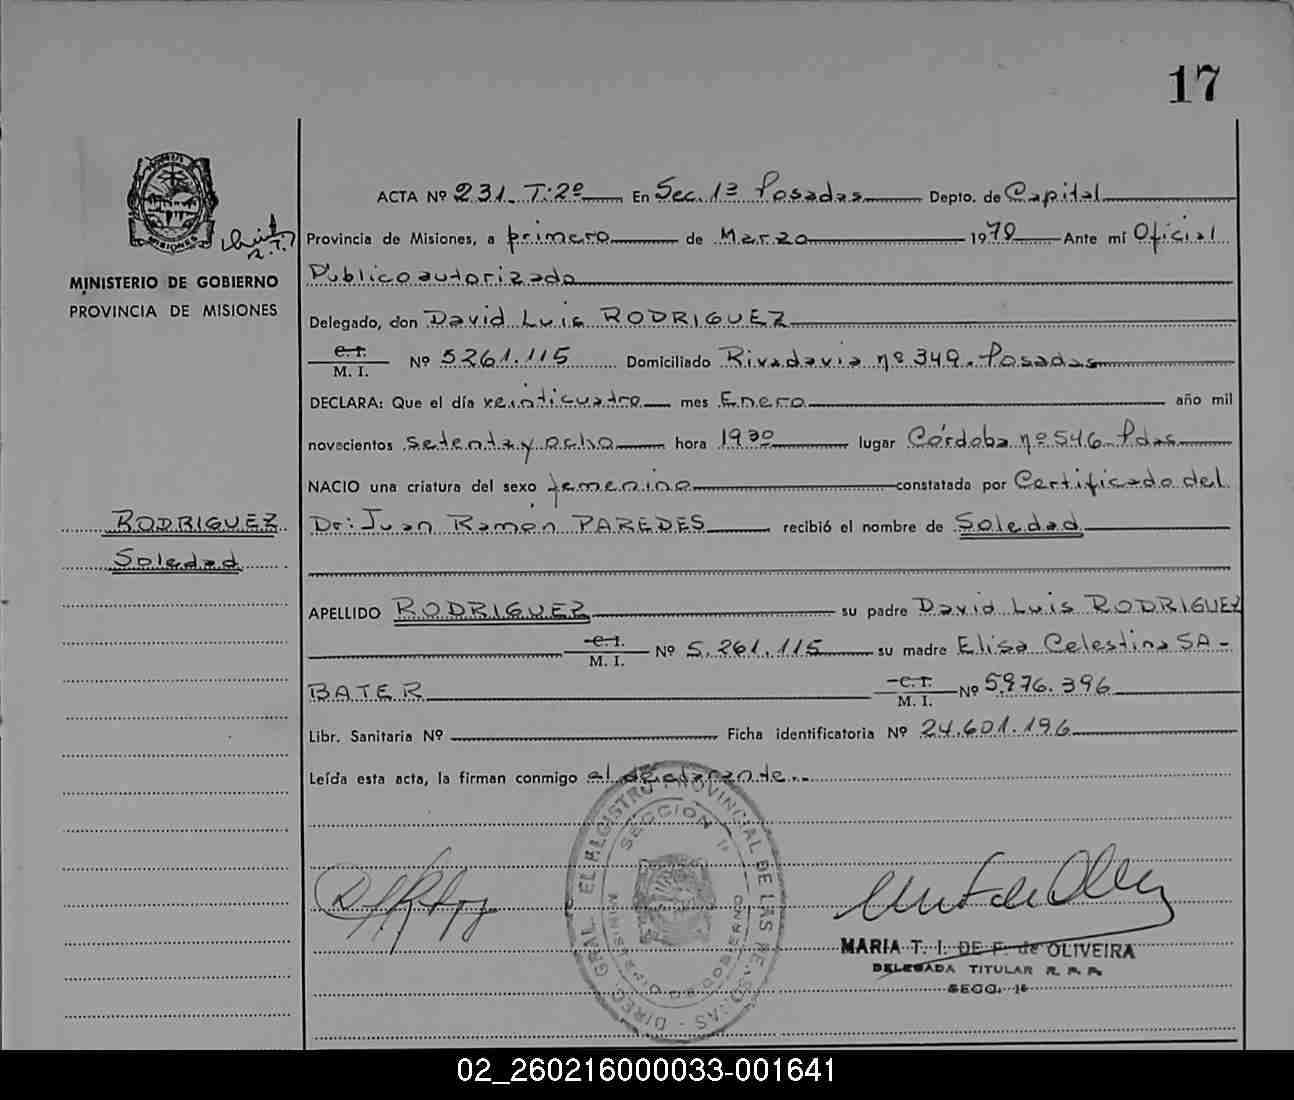 17
ACTA Nº 231. T:2º En Sec. 1ª Posadas Depto. de Capital
Provincia de Misiones, a primero de Marzo 1978 Ante mí Oficial
Publico autorizado
Delegado, don David Luis RODRIGUEZ
C. I.
M. I. Nº 5261.115 Domiciliado Rivadavia nº 349. Posadas
DECLARA: Que el día veinticuatro mes Enero año mil
novecientos setenta y ocho hora 19³⁰ lugar Córdoba nº 546 Pdas
NACIO una criatura del sexo femenino constatado por Certificado del
Dr: Juan Ramón PAREDES recibió el nombre de Soledad
APELLIDO RODRIGUEZ su padre David Luis RODRIGUEZ
C. I.
M. I. Nº 5.261.115 su madre Elisa Celestina SA-
BATER C. I.
M. I. Nº 5.976.396
Libr. Sanitaria Nº Ficha identificatoria Nº 24.601.196
Leída esta acta, la firman conmigo el declarante.
MISIONES
MINISTERIO DE GOBIERNO
PROVINCIA DE MISIONES
RODRIGUEZ
Soledad
DIREC. GRAL. EL REGISTRO PROVINCIAL DE LAS PERSONAS
SECCION 1ª
MARIA T. I. DE F. de OLIVEIRA
DELEGADA TITULAR R. P. P.
SECC. 1ª
02_260216000033-001641